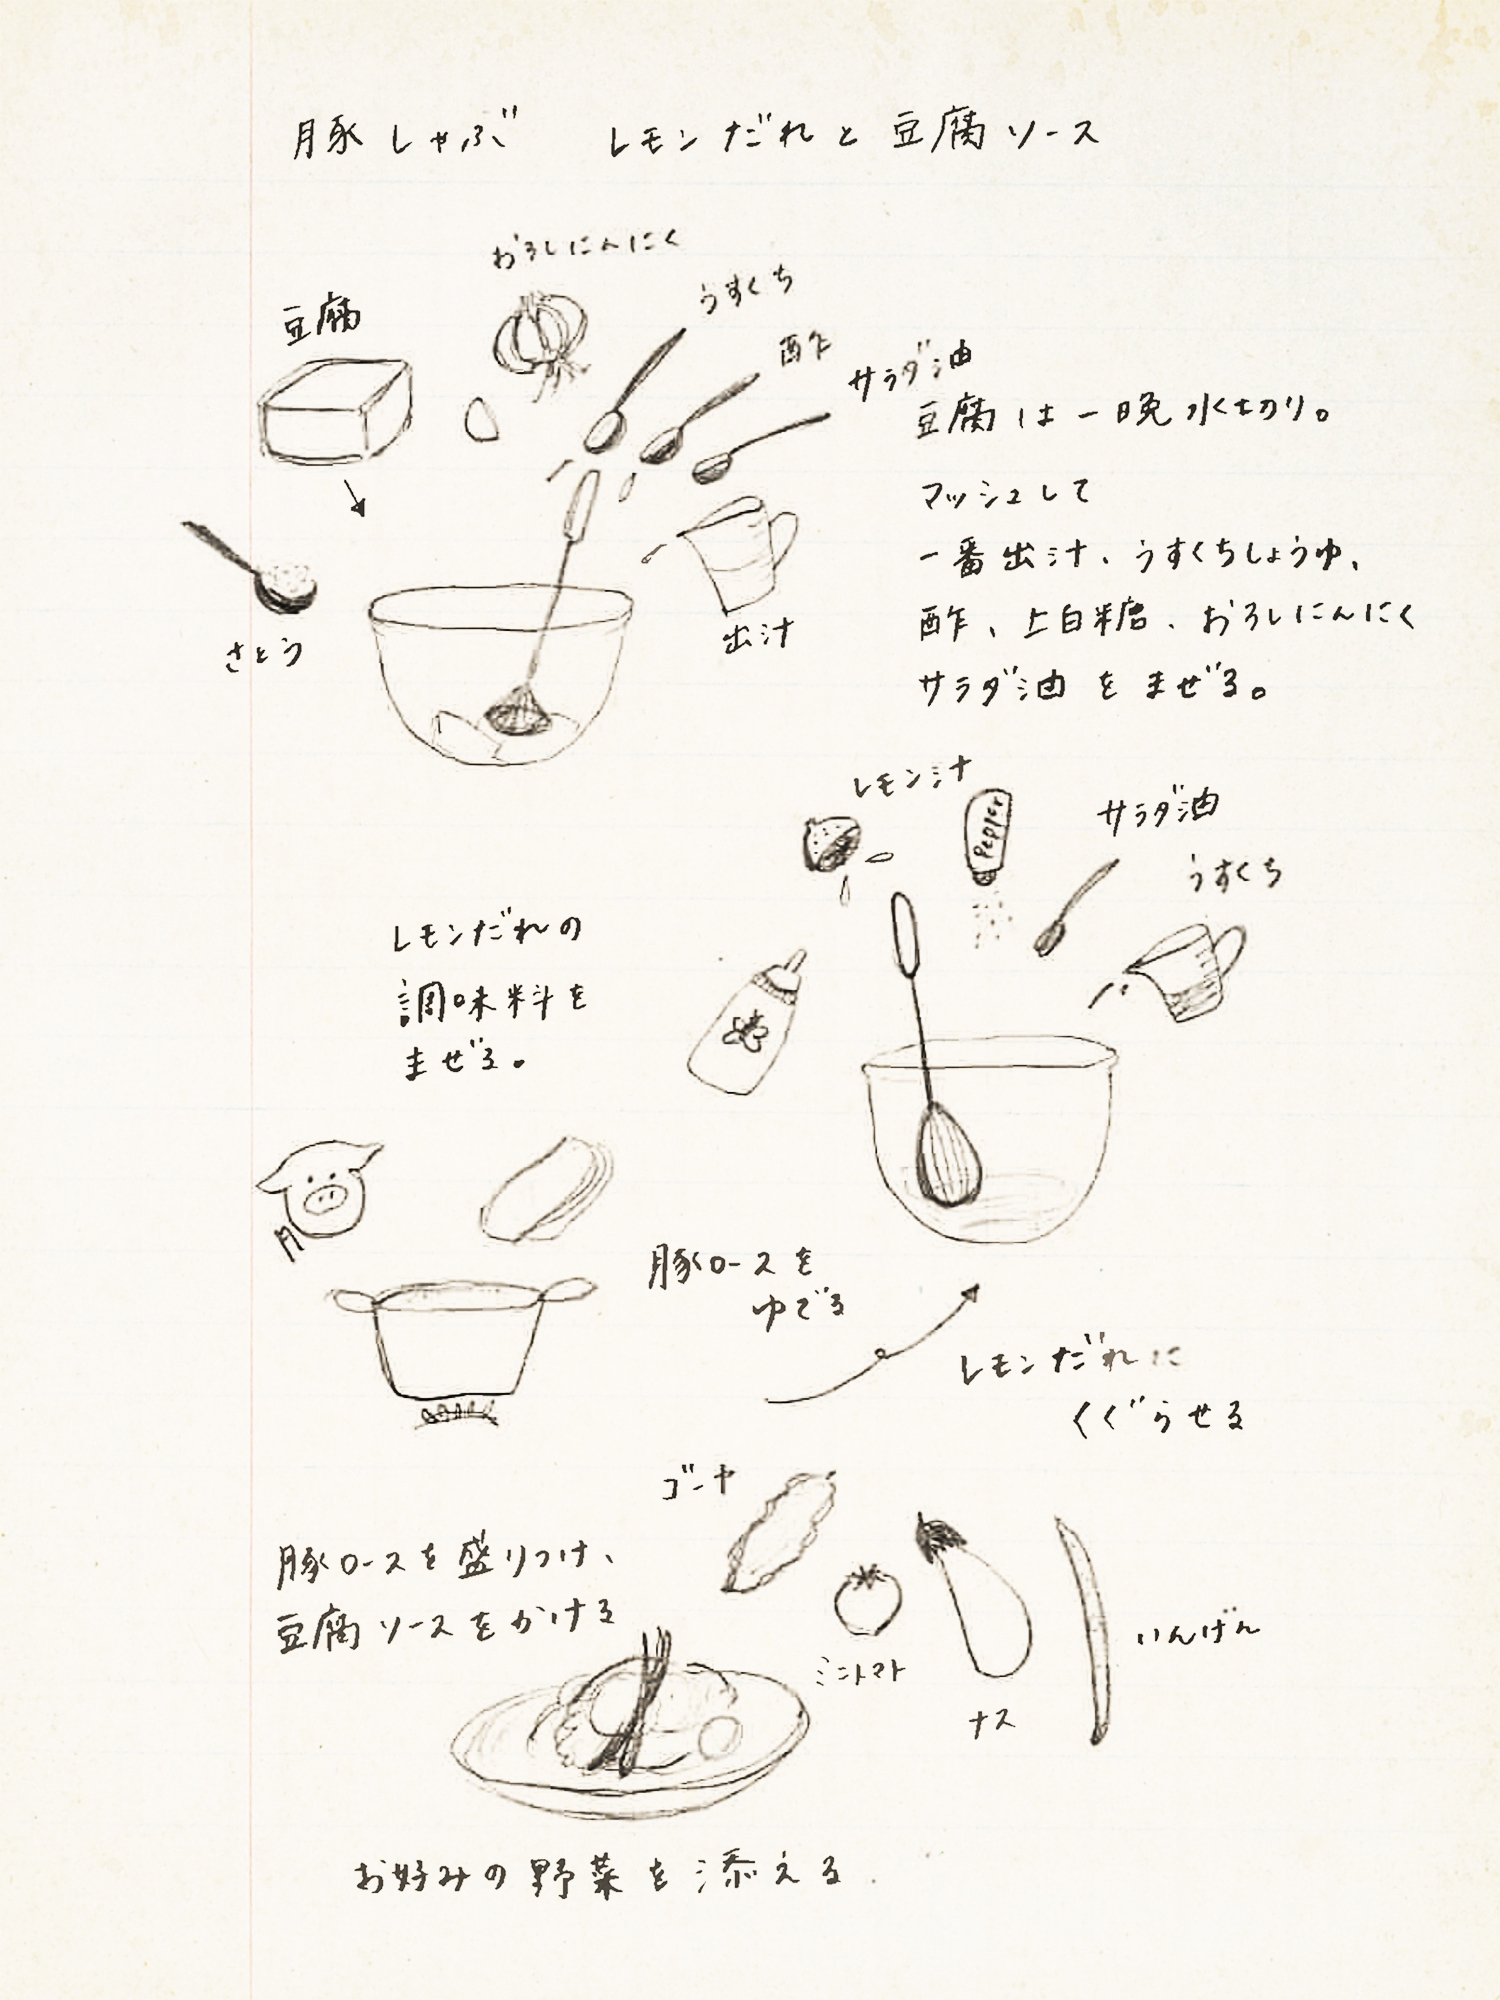 豚しゃぶ レモンだれと豆腐ソース
おろしにんにく
うすくち
酢
サラダ油
豆腐
豆腐は一晩水切り。
マッシュして
一番出汁、うすくちしょうゆ、
酢、上白糖、おろしにんにく
サラダ油をまぜる。
さとう
出汁
レモン汁
Pepper
サラダ油
うすくち
レモンだれの
調味料を
まぜる。
豚ロースを
ゆでる
レモンだれに
くぐらせる
ゴーヤ
豚ロースを盛りつけ、
豆腐ソースをかける
ミニトマト
ナス
いんげん
お好みの野菜を添える.